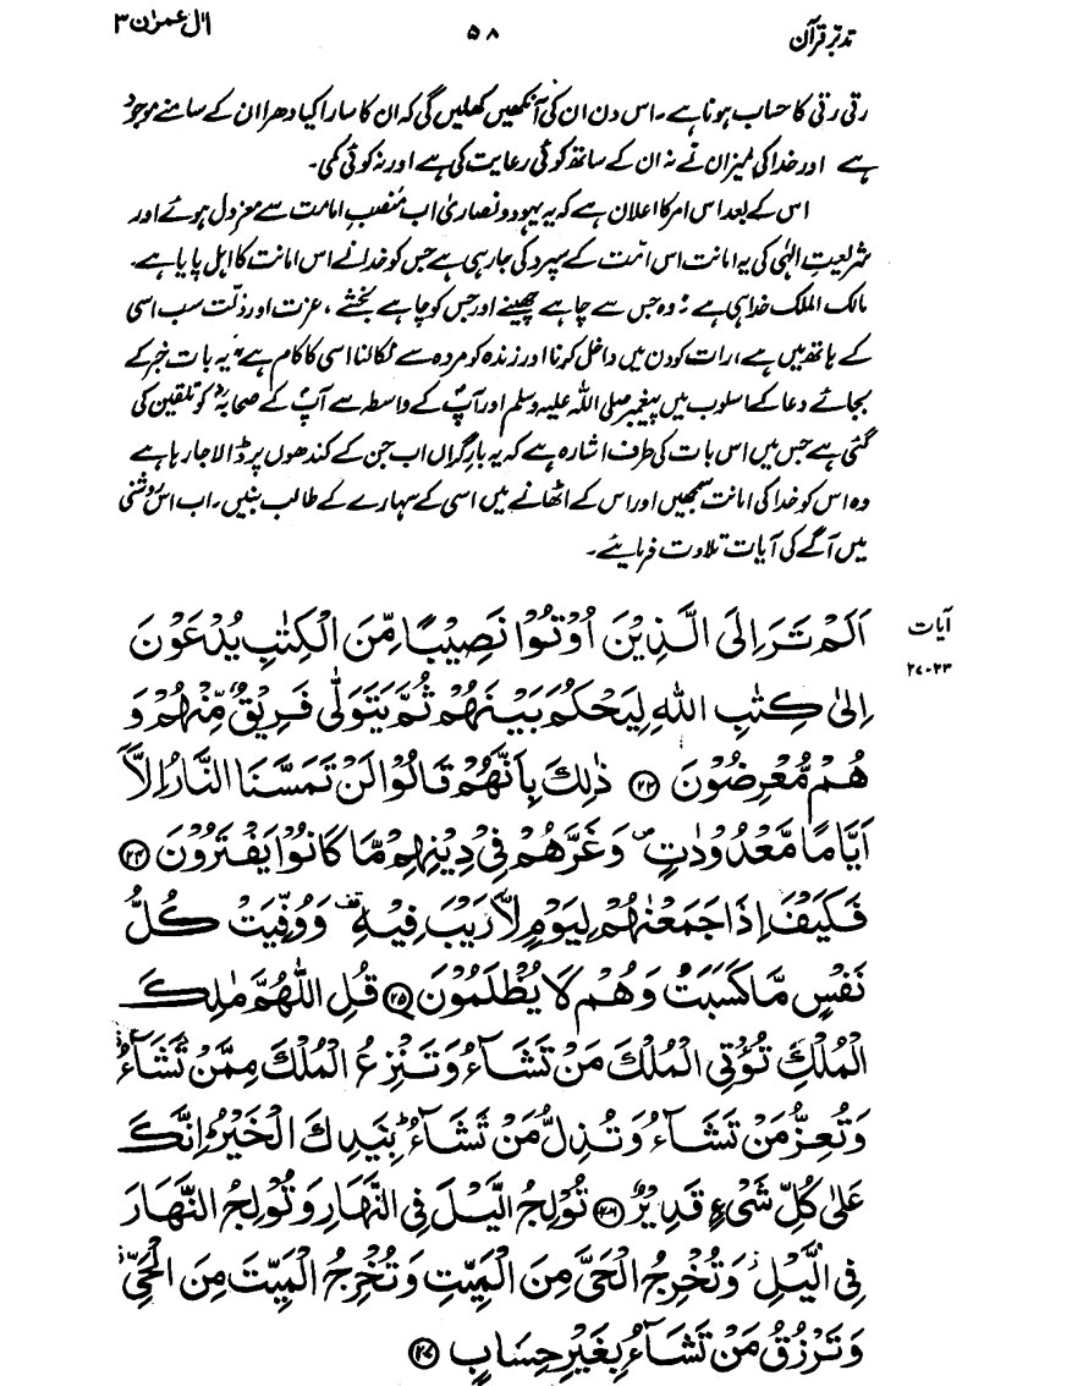 تدبر قرآن ۵۸ اٰل عمرٰن ۳
رتی رتی کا حساب ہونا ہے۔ اس دن ان کی آنکھیں کھلیں گی کہ ان کا سارا کیا دھرا ان کے سامنے موجود
ہے اور خدا کی میزان نے نہ ان کے ساتھ کوئی رعایت کی ہے اور نہ کوئی کمی۔
اس کے بعد اس امر کا اعلان ہے کہ یہ یہود و نصاریٰ اب منصبِ امامت سے معزول ہوئے اور
شریعتِ الٰہی کی یہ امانت اس امت کے سپرد کی جا رہی ہے جس کو خدا نے اس امانت کا اہل پایا ہے۔
مالک الملک خدا ہی ہے۔ وہ جس سے چاہے چھینے اور جس کو چاہے بخشے، عزت اور ذلّت سب اسی
کے ہاتھ میں ہے، رات کو دن میں داخل کرنا اور زندہ کو مردہ سے نکالنا اسی کا کام ہے، یہ بات خبر کے
بجائے دعا کے اسلوب میں پیغمبر صلی اللہ علیہ وسلم اور آپؐ کے واسطہ سے آپؐ کے صحابہؓ کو تلقین کی
گئی ہے جس میں اس بات کی طرف اشارہ ہے کہ یہ بارِ گراں اب جن کے کندھوں پر ڈالا جا رہا ہے
وہ اس کو خدا کی امانت سمجھیں اور اس کے اٹھانے میں اسی کے سہارے کے طالب بنیں۔ اب اس روشنی
میں آگے کی آیات تلاوت فرمایئے۔
آیات
۲۳-۲۷
اَلَمْ تَرَ اِلَى الَّذِيْنَ اُوْتُوْا نَصِيْبًا مِّنَ الْكِتٰبِ يُدْعَوْنَ
اِلٰى كِتٰبِ اللّٰهِ لِيَحْكُمَ بَيْنَهُمْ ثُمَّ يَتَوَلّٰى فَرِيْقٌ مِّنْهُمْ وَ
هُمْ مُّعْرِضُوْنَ ۝۲۳ ذٰلِكَ بِاَنَّهُمْ قَالُوْا لَنْ تَمَسَّنَا النَّارُ اِلَّآ
اَيَّامًا مَّعْدُوْدٰتٍ ۖ وَغَرَّهُمْ فِيْ دِيْنِهِمْ مَّا كَانُوْا يَفْتَرُوْنَ ۝۲۴
فَكَيْفَ اِذَا جَمَعْنٰهُمْ لِيَوْمٍ لَّا رَيْبَ فِيْهِ وَوُفِّيَتْ كُلُّ
نَفْسٍ مَّا كَسَبَتْ وَهُمْ لَا يُظْلَمُوْنَ ۝۲۵ قُلِ اللّٰهُمَّ مٰلِكَ
الْمُلْكِ تُؤْتِى الْمُلْكَ مَنْ تَشَآءُ وَتَنْزِعُ الْمُلْكَ مِمَّنْ تَشَآءُ
وَتُعِزُّ مَنْ تَشَآءُ وَتُذِلُّ مَنْ تَشَآءُ ؕ بِيَدِكَ الْخَيْرُ ؕ اِنَّكَ
عَلٰى كُلِّ شَىْءٍ قَدِيْرٌ ۝۲۶ تُوْلِجُ الَّيْلَ فِى النَّهَارِ وَتُوْلِجُ النَّهَارَ
فِى الَّيْلِ وَتُخْرِجُ الْحَىَّ مِنَ الْمَيِّتِ وَتُخْرِجُ الْمَيِّتَ مِنَ الْحَىِّ
وَتَرْزُقُ مَنْ تَشَآءُ بِغَيْرِ حِسَابٍ ۝۲۷